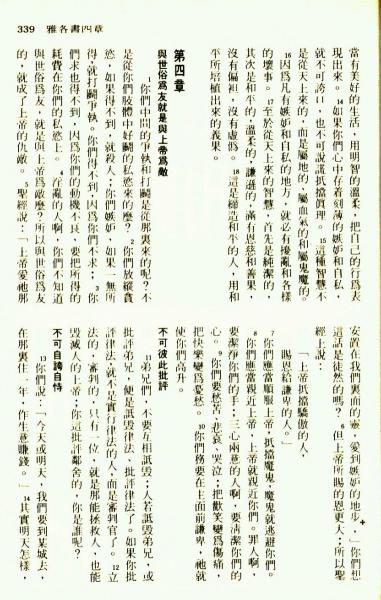 339　雅各書四章
當有美好的生活，用明智的溫柔，把自己的行爲表
現出來。14如果你們心中存着刻薄的嫉妒和自私，
就不可誇口，也不可說謊抵擋眞理。15這種智慧不
是從天上來的，而是屬地的、屬血氣的和屬鬼魔的。
16因爲凡有嫉妒和自私的地方，就必有擾亂和各樣
的壞事。17至於從天上來的智慧，首先是純潔的，
其次是和平的，溫柔的，謙遜的，滿有恩慈和善果，
沒有偏袒，沒有虛僞。18這是締造和平的人，用和
平所培植出來的義果。
第四章
與世俗爲友就是與上帝爲敵
1你們中間的爭執和打鬬是從那裏來的呢？不
是從你們肢體中好鬬的私慾來的麼？2你們放縱貪
慾，如果得不到，就殺人；你們嫉妒，如果一無所
得，就打鬬爭執。你們得不到，因爲你們不求；3你
們求也得不到，因爲你們的動機不良，要把所得的
耗費在你們的私慾上。4淫亂的人啊，你們不知道
與世俗爲友，就是與上帝爲敵麼？所以與世俗爲友
的，就成了上帝的仇敵。5聖經說：「上帝愛祂那
安置在我們裏面的靈，愛到嫉妒的地步，」你們想
這話是徒然的嗎？6但上帝所賜的恩更大，所以聖
經上說：
「上帝抵擋驕傲的人，
賜恩給謙卑的人。」
7你們應當順服上帝，抵擋魔鬼，魔鬼就逃避你們。
8你們應當親近上帝，上帝就親近你們。罪人啊，
要潔淨你們的手；三心兩意的人啊，要清潔你們的
心。9你們要愁苦、悲哀、哭泣；把歡笑變爲傷痛，
把快樂變爲憂愁。10你們務要在主面前謙卑，祂就
使你們高升。
不可彼此批評
11弟兄們，不要互相詆毀；人若詆毀弟兄，或
批評弟兄，便是詆毀律法、批評律法了。如果你批
評律法，就不是實行律法的人，而是審判官了。12立
法的，審判的，只有一位，就是那能拯救人，也能
毀滅人的上帝；你這批評鄰舍的，你是誰呢？
不可自誇自恃
13你們說：「今天或明天，我們要到某城去，
在那裏住一年，作生意賺錢。」14其實明天怎樣，